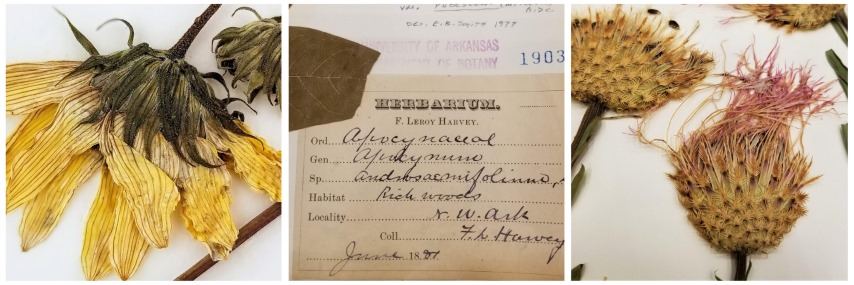 var. 
Det. E.B. Smith 1977
UNIVERSITY OF ARKANSAS
DEPARTMENT OF BOTANY
1903
HERBARIUM.
F. LEROY HARVEY.
Ord. Apocynaceae
Gen. Apocynum
Sp. Androsaemifolium,
Habitat Rich woods
Locality N. W. Ark
Coll. F. L. Harvey
June 1881